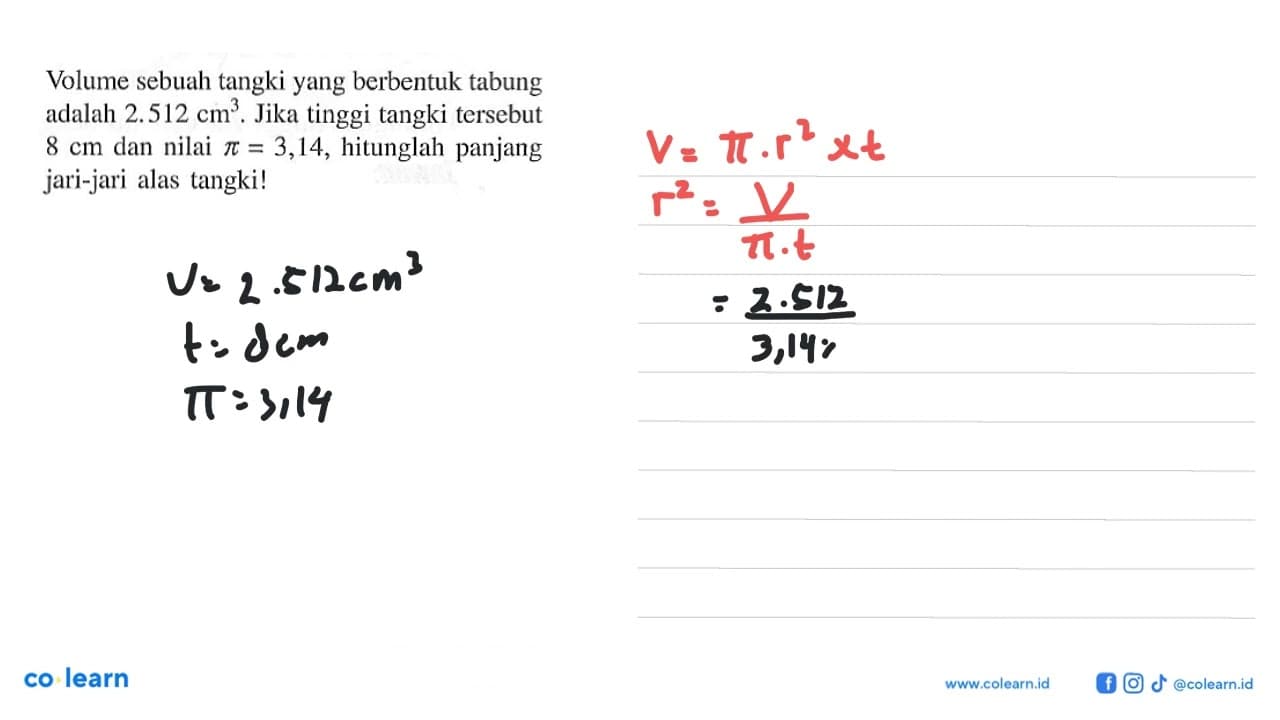 Volume sebuah tangki yang berbentuk tabung
adalah 2.512 cm³. Jika tinggi tangki tersebut
8 cm dan nilai π = 3,14, hitunglah panjang
jari-jari alas tangki!
V = 2.512 cm³
t = 8 cm
π = 3,14
V = π . r² x t
r² = V
π . t
= 2.512
3,14
co learn
www.colearn.id
@colearn.id